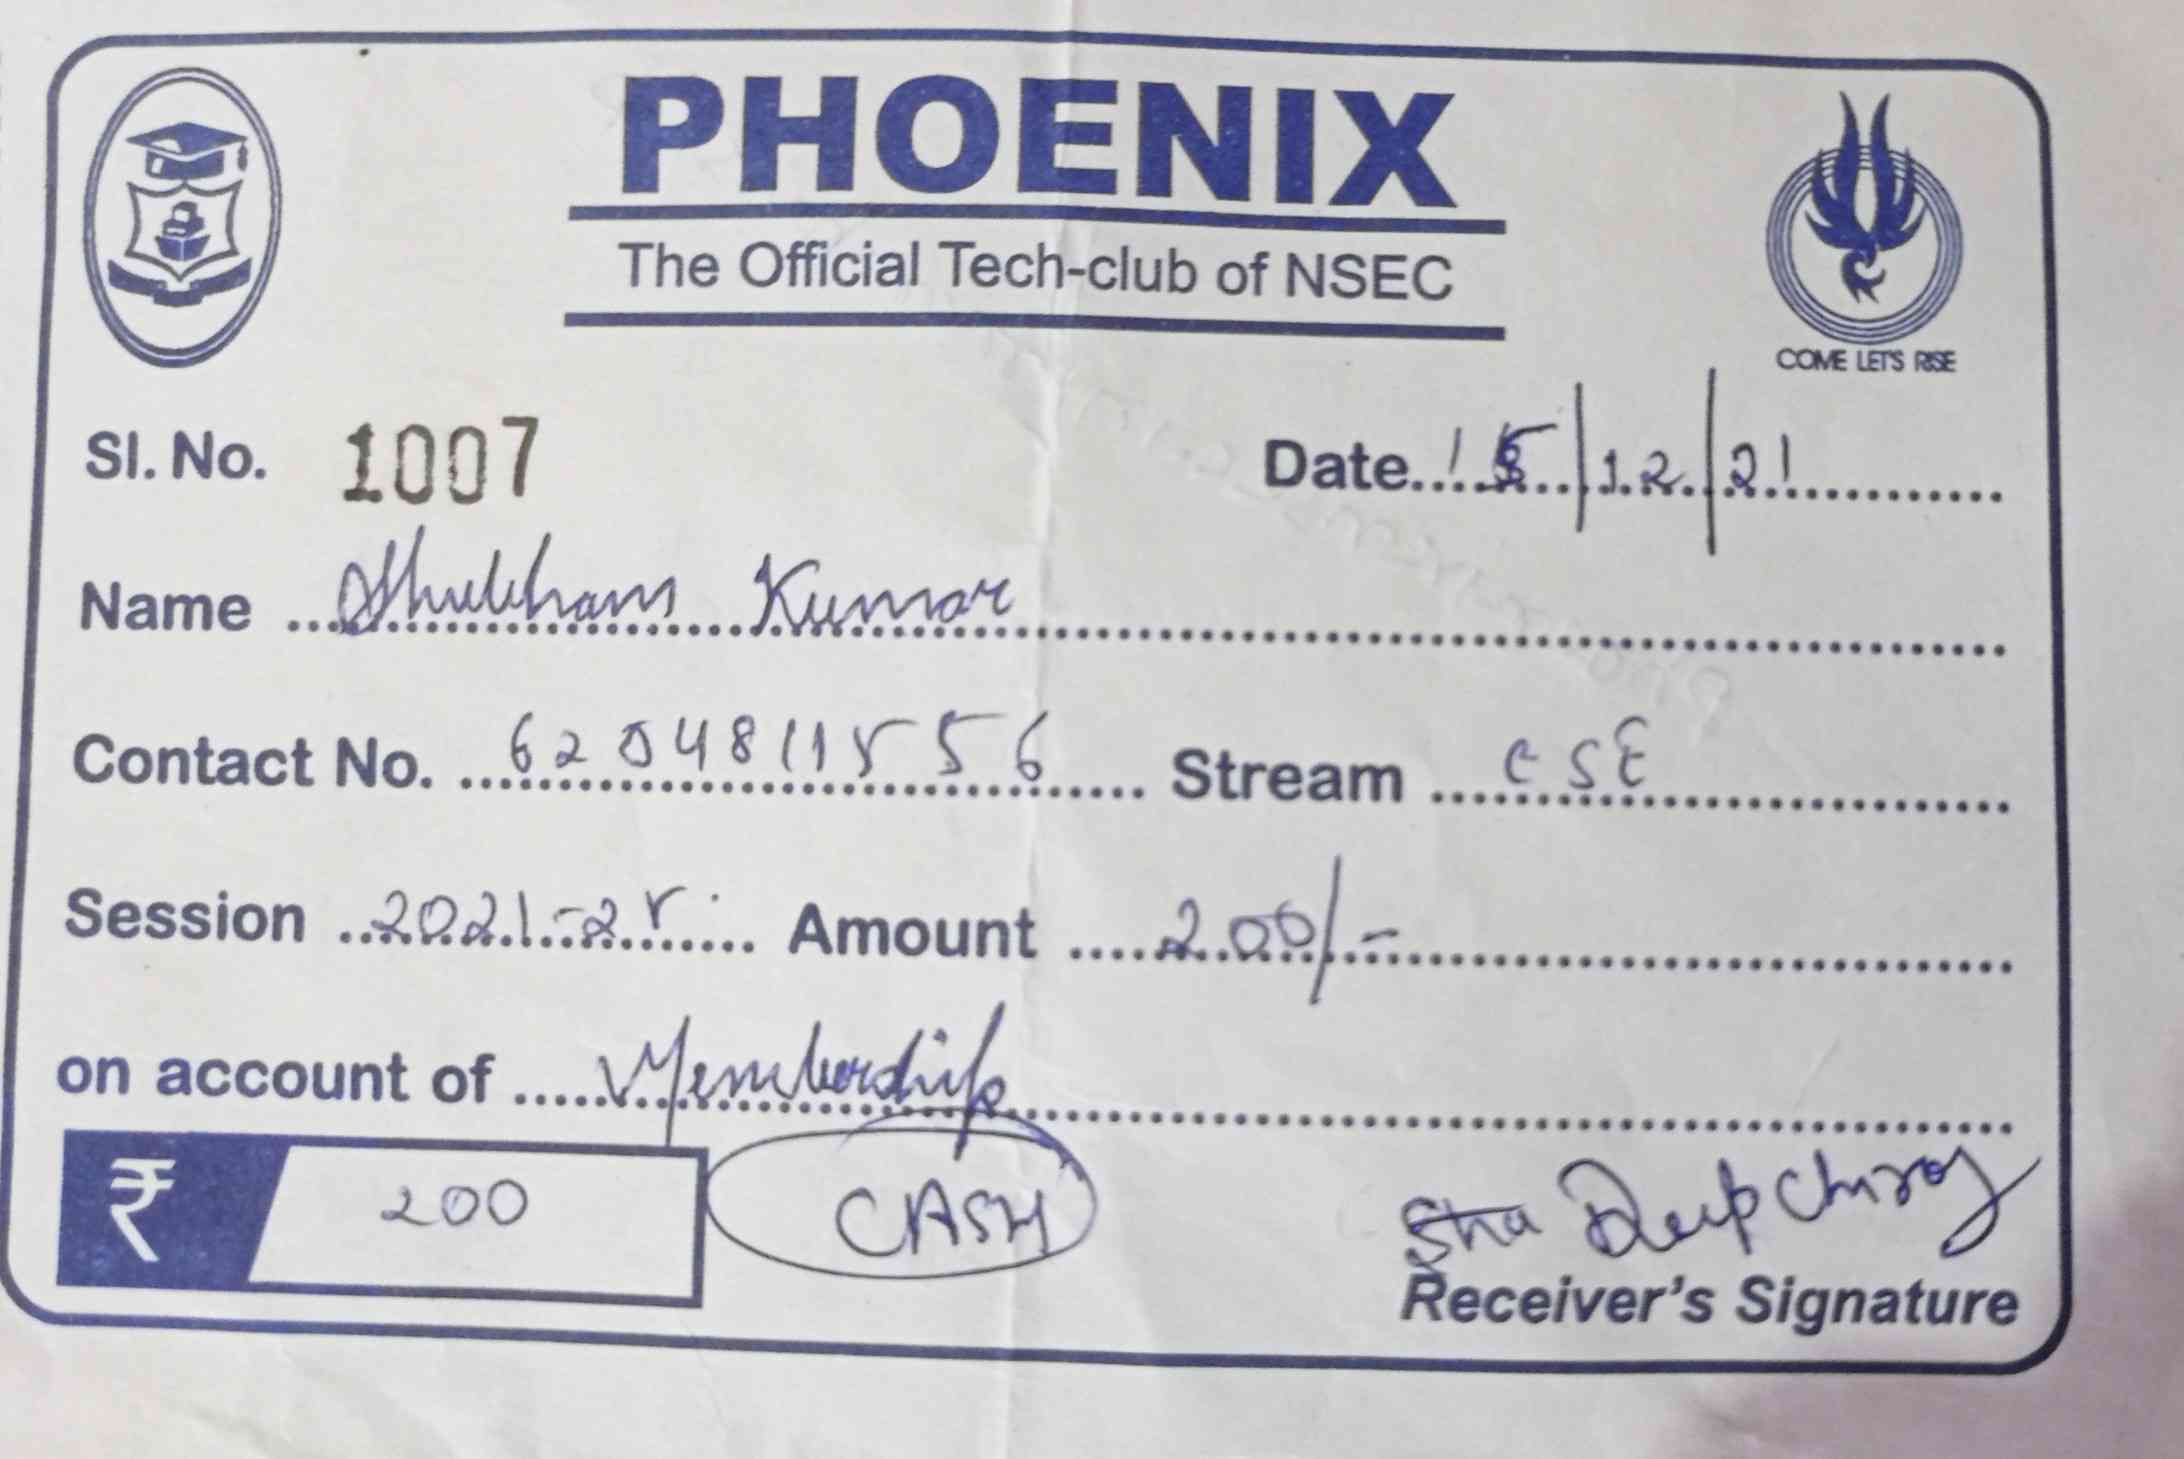 PHOENIX
The Official Tech-club of NSEC
COME LET'S RISE
Sl. No. 1007 Date 15/12/21
Name Shubham Kumar
Contact No. 6204811556 Stream CSE
Session 2021-25 Amount 200/-
on account of Membership
₹ 200 CASH
Deep
Receiver's Signature